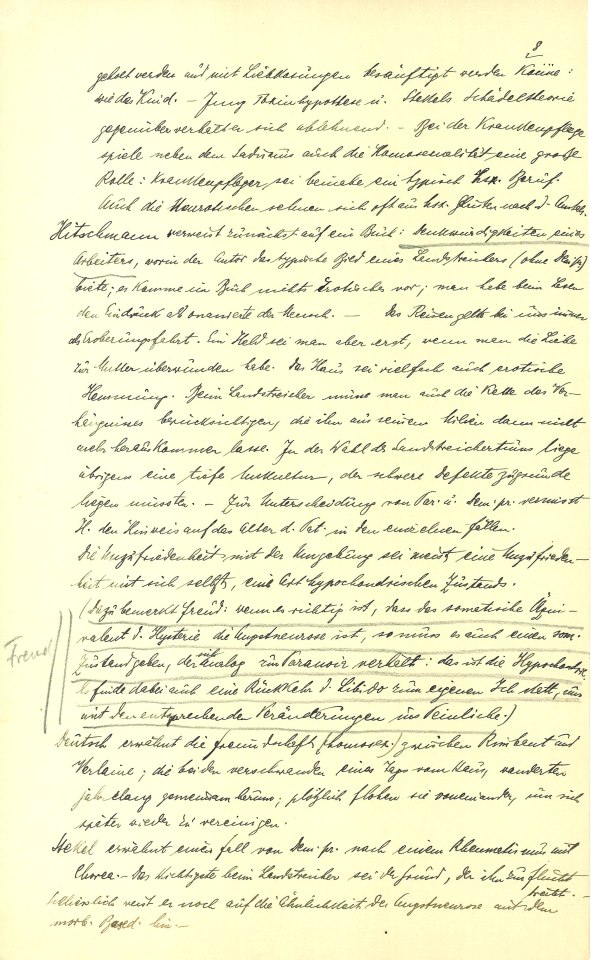 8
geholt werden und mit Liebkosungen besänftigt werden könne:
wie das Kind. – Jung Traumhypothese u. Stekels Schädeltheorie
gegenüber verhält er sich ablehnend. – Bei der Krankenpflege
spiele neben dem Sadismus auch die Homosexualität eine große
Rolle: Krankenpfleger sei beinahe ein typisch hsx. Beruf.
Auch die Neurotischen sehnen sich oft aus hsx. nach d.
Hitschmann verweist zunächst auf ein Buch: Denkwürdigkeiten eines
Arbeiters, worin der Autor das typische Bild eines Landstreichers (ohne
biete; es komme im Buch nichts Erotisches vor; man habe beim Lesen
den Eindruck als onanierte der Mensch. – Das Reisen gelte bei uns immer
als Eroberungsfahrt. Ein Held sei man aber erst, wenn man die Liebe
zur Mutter überwunden habe. Das Haus sei vielfach auch erotische
Hemmung. Beim Landstreicher müsse man auch die Kette des Ver-
hängnisses berücksichtigen, die ihn aus seinem Milieu dann nicht
mehr herauskommen lasse. In der Wahl des Landstreichertums liege
übrigens eine tiefe Unkultur, der schwere Defekte zugrunde
liegen müssten. – Zur Unterscheidung von Par. u. Dem. pr. vermisst
H. den Hinweis auf das Alter d. Pat. in den einzelnen Fällen.
Die Unzufriedenheit mit der Umgebung sei meist eine Unzufrieden-
heit mit sich selbst, eine Art hypochondrischen Zustands.
(Dazu bemerkt Freud: wenn es richtig ist, dass das somatische Äqui-
valent d. Hysterie die Angstneurose ist, so muss es auch einen som.
Zustand geben, der sich analog zur Paranoia verhält: das ist die Hypochondrie.
Es finde dabei auch eine Rückkehr d. Libido zum eigenen Ich statt, nur
mit den entsprechenden Veränderungen ins Peinliche.)
Freud
Deutsch erwähnt die Freundschaft (homosex.) zwischen Rimbeut und
Verlaine; die beiden verschwanden eines Tags vom Haus, wanderten
jahrelang gemeinsam herum; plötzlich flohen sie voneinander, um sich
später wieder zu vereinigen.
Stekel erwähnt einen Fall von Dem. pr. nach einem Rheumatismus mit
Chorea. – Das Wichtigste beim Landstreicher sei der Grund, der ihn zur Flucht
treibt. –
Schliesslich weist er noch auf die Ähnlichkeit der Angstneurose mit dem
morb. Based. hin. –